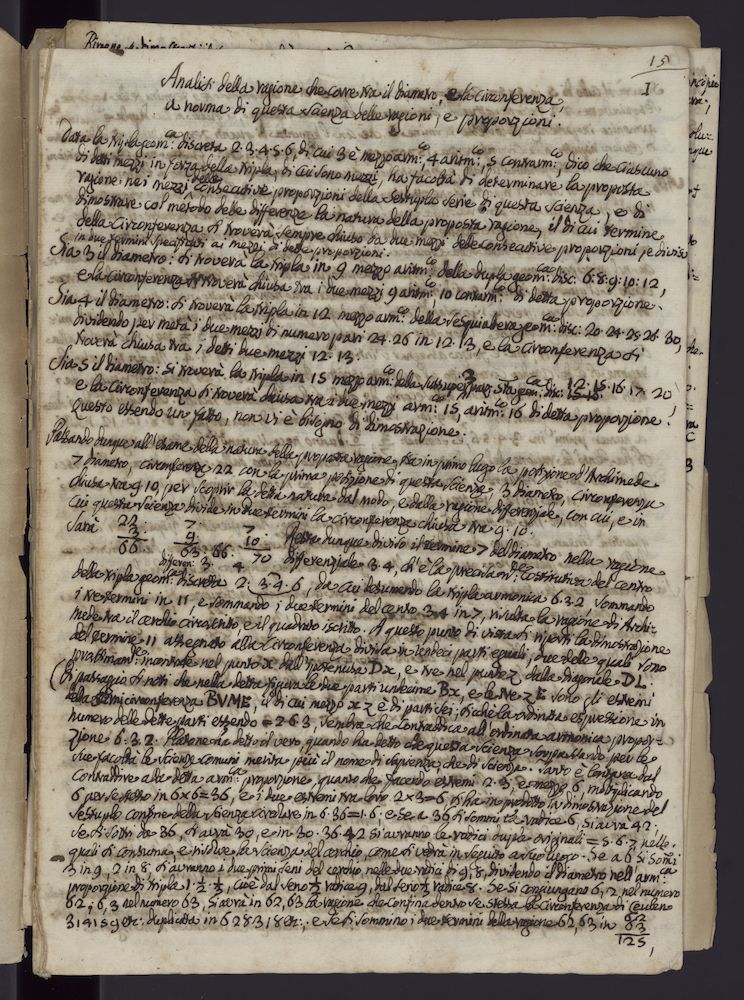 15
I
Analisi della ragione che corre tra il diametro, e la Circonferenza,
a norma di questa Scienza delle ragioni, e proporzioni.
Data la tripla geom:ca discreta 2.3.4.5.6, di cui 3 è mezzo arm:co, 4 aritm:co, 5 contrarm:co, dico che ciascuno
di detti mezzi in forza della tripla, di cui sono mezzi, ha facoltà di determinare la proposta
ragione nei mezzi delle consecutive proporzioni della sestupla serie di questa Scienza, e di
dimostrare col metodo delle differenze la natura della proposta ragione, il di cui termine
della Circonferenza si troverà sempre chiuso da due mezzi delle consecutive proporzioni, e diviso
in due termini specificati ai mezzi di dette proporzioni.
Sia 3 il diametro: si troverà la tripla in 9 mezzo aritm:co della dupla geom:ca disc: 6.8.9.10.12,
e la circonferenza si troverà chiusa tra i due mezzi 9 aritm:co 10 contrarm:co di detta proporzione.
Sia 4 il diametro: si troverà la tripla in 12 mezzo arm:co della Sesquialtera geom:ca disc: 20.24.25.26.30,
dividendo per metà i due mezzi di numero pari 24.26 in 12.13, e la Circonferenza si
troverà chiusa tra i detti due mezzi 12.13.
Sia 5 il diametro: si troverà la tripla in 15 mezzo arm:co della geom:ca disc: 12.15.16.17.20
e la Circonferenza si troverà chiusa tra i due mezzi arm:co 15, aritm:co 16 di detta proporzione.
Questo essendo un fatto, non vi è bisogno di dimostrazione.
Passando dunque all'esame della natura della proposta ragione, sia in primo luogo la posizione d'Archimede
7 diametro, circonferenza 22 con la prima posizione di questa Scienza, 3 diametro, Circonferenza
chiusa tra 9.10, per scoprir la detta natura dal modo, e dalla ragione differenziale, con cui, e in
cui questa Scienza divide in due termini la circonferenza chiusa tra 9.10.
Sarà 22: 7 7
3 9 10: Resta dunque diviso il termine 7 del diametro nella ragione
66 63: 66. 70 differenziale 3.4, ch'è la precisa costitutiva del centro
differen: 3. 4
della tripla geom:ca discreta 2.3.4.6, da cui desumendo la tripla armonica 6.3.2 sommando
i tre termini in 11, e sommando i due termini del centro 3.4 in 7, risulta la ragione di Archi-
mede tra il cerchio circoscritto, e il quadrato iscritto. A questo punto di vista si riporti la dimostrazione
del termine 11 assegnato alla Circonferenza divisa in undeci parti eguali, due delle quali sono
incontrate nel punto x dall'ipotenusa Dx, e tre nel punto z dalla diagonale DL.
(Di passaggio si noti che nella detta figura le due parti undecime Bx, e le tre zE sono gli estremi
della semicirconferenza BVME, il di cui mezzo xz è di parti sei; sicchè la ordinata espressione in
numero delle dette parti essendo = 2.6.3, sembra che contraddica all'ordinata armonica propor-
zione 6.3.2. Platone ha detto il vero, quando ha detto che questa Scienza sorpassando per le
sue facoltà le scienze comuni merita più il nome di sapienza, che di Scienza. Tanto è lontana dal
contraddire alla detta arm:ca proporzione, quanto che facendo estremi 2.3, e mezzo 6, moltiplicando
6 per se stesso in 6x6=36, e i due estremi tra loro 2x3=6, si ha in prodotto la dimostrazione del
sestuplo confine della Scienza circolare in 6.36=1.6. e se a 36 si sommi la radice 6, si avrà 42.
Se si sottri da 36, si avrà 30, e in 30.36.42 si avranno le radici duple originali = 5.6.7, nelle
quali si consuma e risolve la Scienza del cerchio, come si vedrà in seguito a suo luogo. Se a 6 si sommi
3 in 9, 2 in 8, si avranno i due primi seni del cerchio nelle due radici di 9, 8, dividendo il diametro nell'arm:ca
proporzione di tripla 1.½.⅓, cioè dal seno ½ radice 9, dal seno ⅓ radice 8. Se si congiungano 6, 2 nel numero
62; 6, 3 nel numero 63, si avrà in 62, 63 la ragione che confina dentro se stessa la Circonferenza di Ceuleno
314159 etc: duplicata in 628318 etc:, e se si sommino i due termini della ragione 62, 63 in 62
63
125,